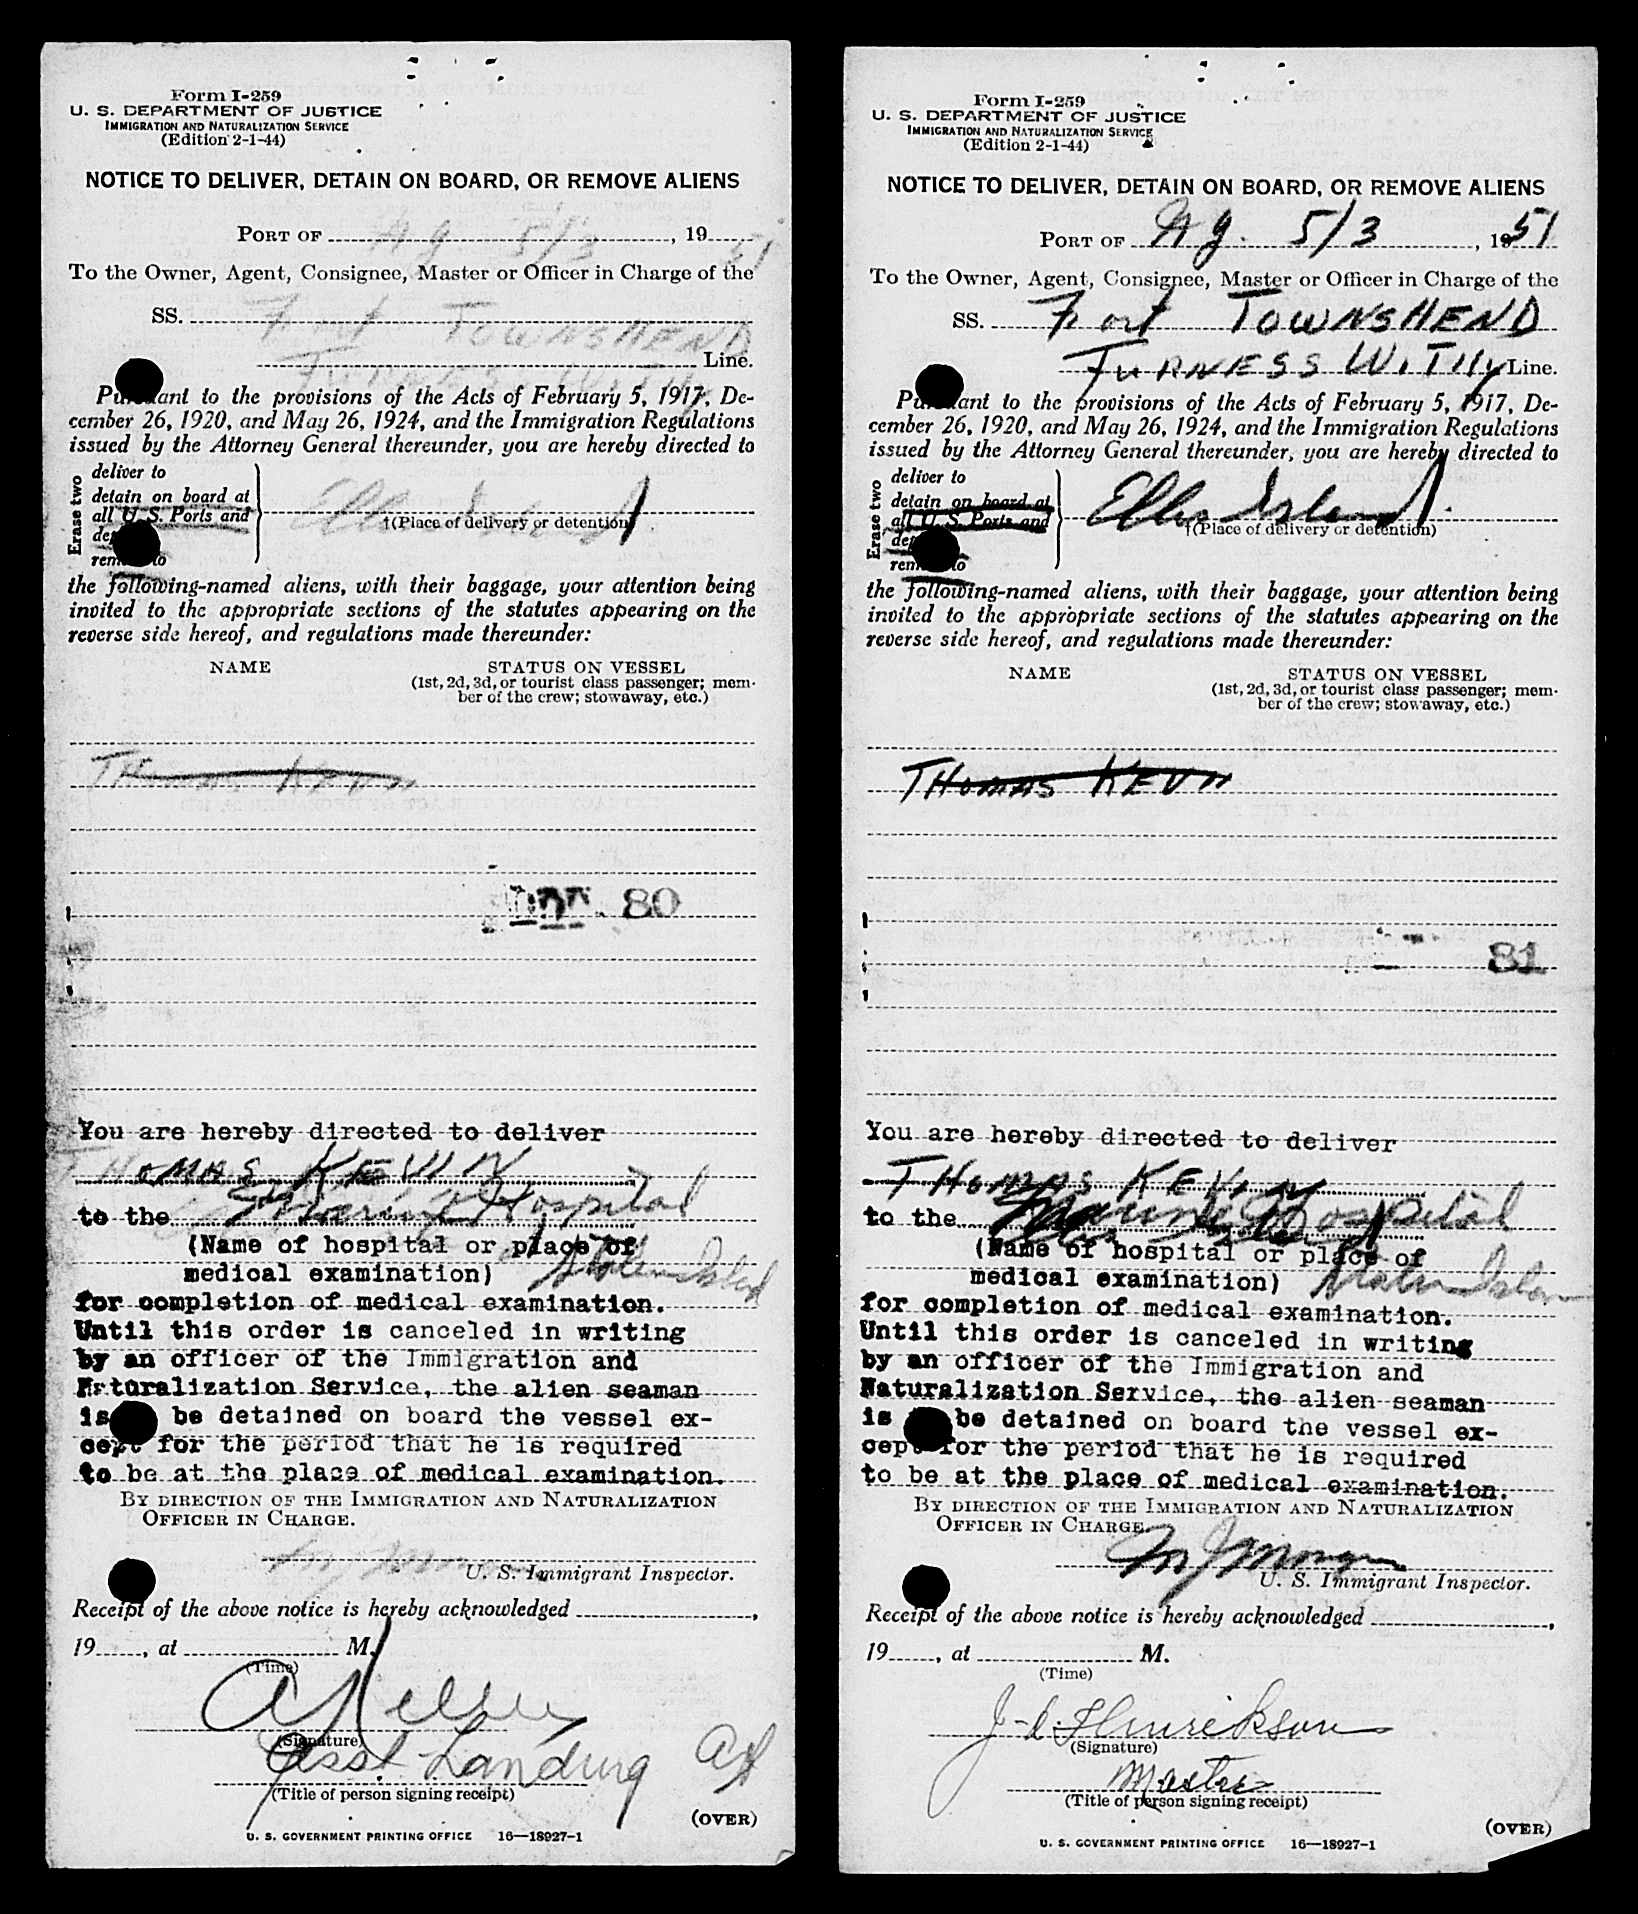 Form I-259
U. S. DEPARTMENT OF JUSTICE
IMMIGRATION AND NATURALIZATION SERVICE
(Edition 2-1-44)
NOTICE TO DELIVER, DETAIN ON BOARD, OR REMOVE ALIENS
PORT OF 5/3, 19 51
To the Owner, Agent, Consignee, Master or Officer in Charge of the
SS. Fort TOWNSHEND
FURNESS WITHY Line.
Pursuant to the provisions of the Acts of February 5, 1917, De-
cember 26, 1920, and May 26, 1924, and the Immigration Regulations
issued by the Attorney General thereunder, you are hereby directed to
Erase two
deliver to
detain on board at
all U. S. Ports and
remove to
Ellis Island
†(Place of delivery or detention)
the following-named aliens, with their baggage, your attention being
invited to the appropriate sections of the statutes appearing on the
reverse side hereof, and regulations made thereunder:
NAME STATUS ON VESSEL
(1st, 2d, 3d, or tourist class passenger; mem-
ber of the crew; stowaway, etc.)
THOMAS KEVIN
80
You are hereby directed to deliver
THOMAS KEVIN
to the Marine Hospital
(Name of hospital or place of
medical examination) Staten Island
for completion of medical examination.
Until this order is canceled in writing
by an officer of the Immigration and
Naturalization Service, the alien seaman
is be detained on board the vessel ex-
cept for the period that he is required
to be at the place of medical examination.
BY DIRECTION OF THE IMMIGRATION AND NATURALIZATION
OFFICER IN CHARGE.
U. S. Immigrant Inspector.
Receipt of the above notice is hereby acknowledged ,
19 , at M.
(Time)
(Signature)
Asst. Landing Agt
(Title of person signing receipt)
(OVER)
U. S. GOVERNMENT PRINTING OFFICE 16—18927-1
Form I-259
U. S. DEPARTMENT OF JUSTICE
IMMIGRATION AND NATURALIZATION SERVICE
(Edition 2-1-44)
NOTICE TO DELIVER, DETAIN ON BOARD, OR REMOVE ALIENS
PORT OF 5/3, 1951
To the Owner, Agent, Consignee, Master or Officer in Charge of the
SS. Fort TOWNSHEND
FURNESS WITHY Line.
Pursuant to the provisions of the Acts of February 5, 1917, De-
cember 26, 1920, and May 26, 1924, and the Immigration Regulations
issued by the Attorney General thereunder, you are hereby directed to
Erase two
deliver to
detain on board at
all U. S. Ports and
remove to
Ellis Island
†(Place of delivery or detention)
the following-named aliens, with their baggage, your attention being
invited to the appropriate sections of the statutes appearing on the
reverse side hereof, and regulations made thereunder:
NAME STATUS ON VESSEL
(1st, 2d, 3d, or tourist class passenger; mem-
ber of the crew; stowaway, etc.)
THOMAS KEVIN
81
You are hereby directed to deliver
THOMAS KEVIN
to the Marine Hospital
(Name of hospital or place of
medical examination) Staten Island
for completion of medical examination.
Until this order is canceled in writing
by an officer of the Immigration and
Naturalization Service, the alien seaman
is be detained on board the vessel ex-
cept for the period that he is required
to be at the place of medical examination.
BY DIRECTION OF THE IMMIGRATION AND NATURALIZATION
OFFICER IN CHARGE.
U. S. Immigrant Inspector.
Receipt of the above notice is hereby acknowledged ,
19 , at M.
(Time)
(Signature)
Master
(Title of person signing receipt)
(OVER)
U. S. GOVERNMENT PRINTING OFFICE 16—18927-1